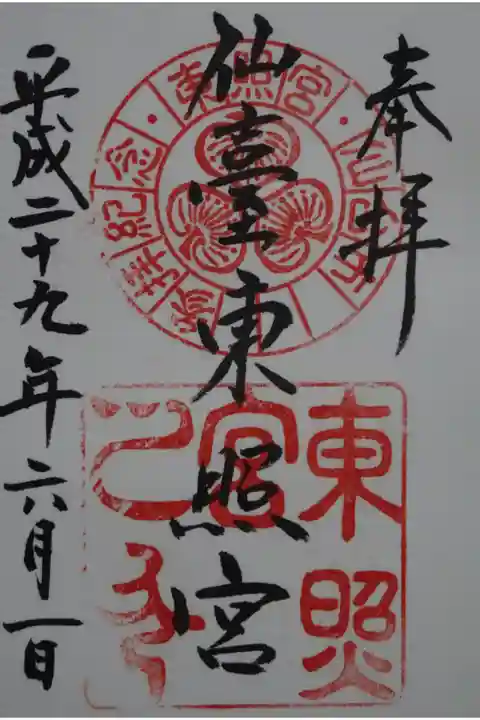 奉拝
仙臺東照宮
平成二十九年六月一日
東照宮
參拜紀念
東照
宮
之印